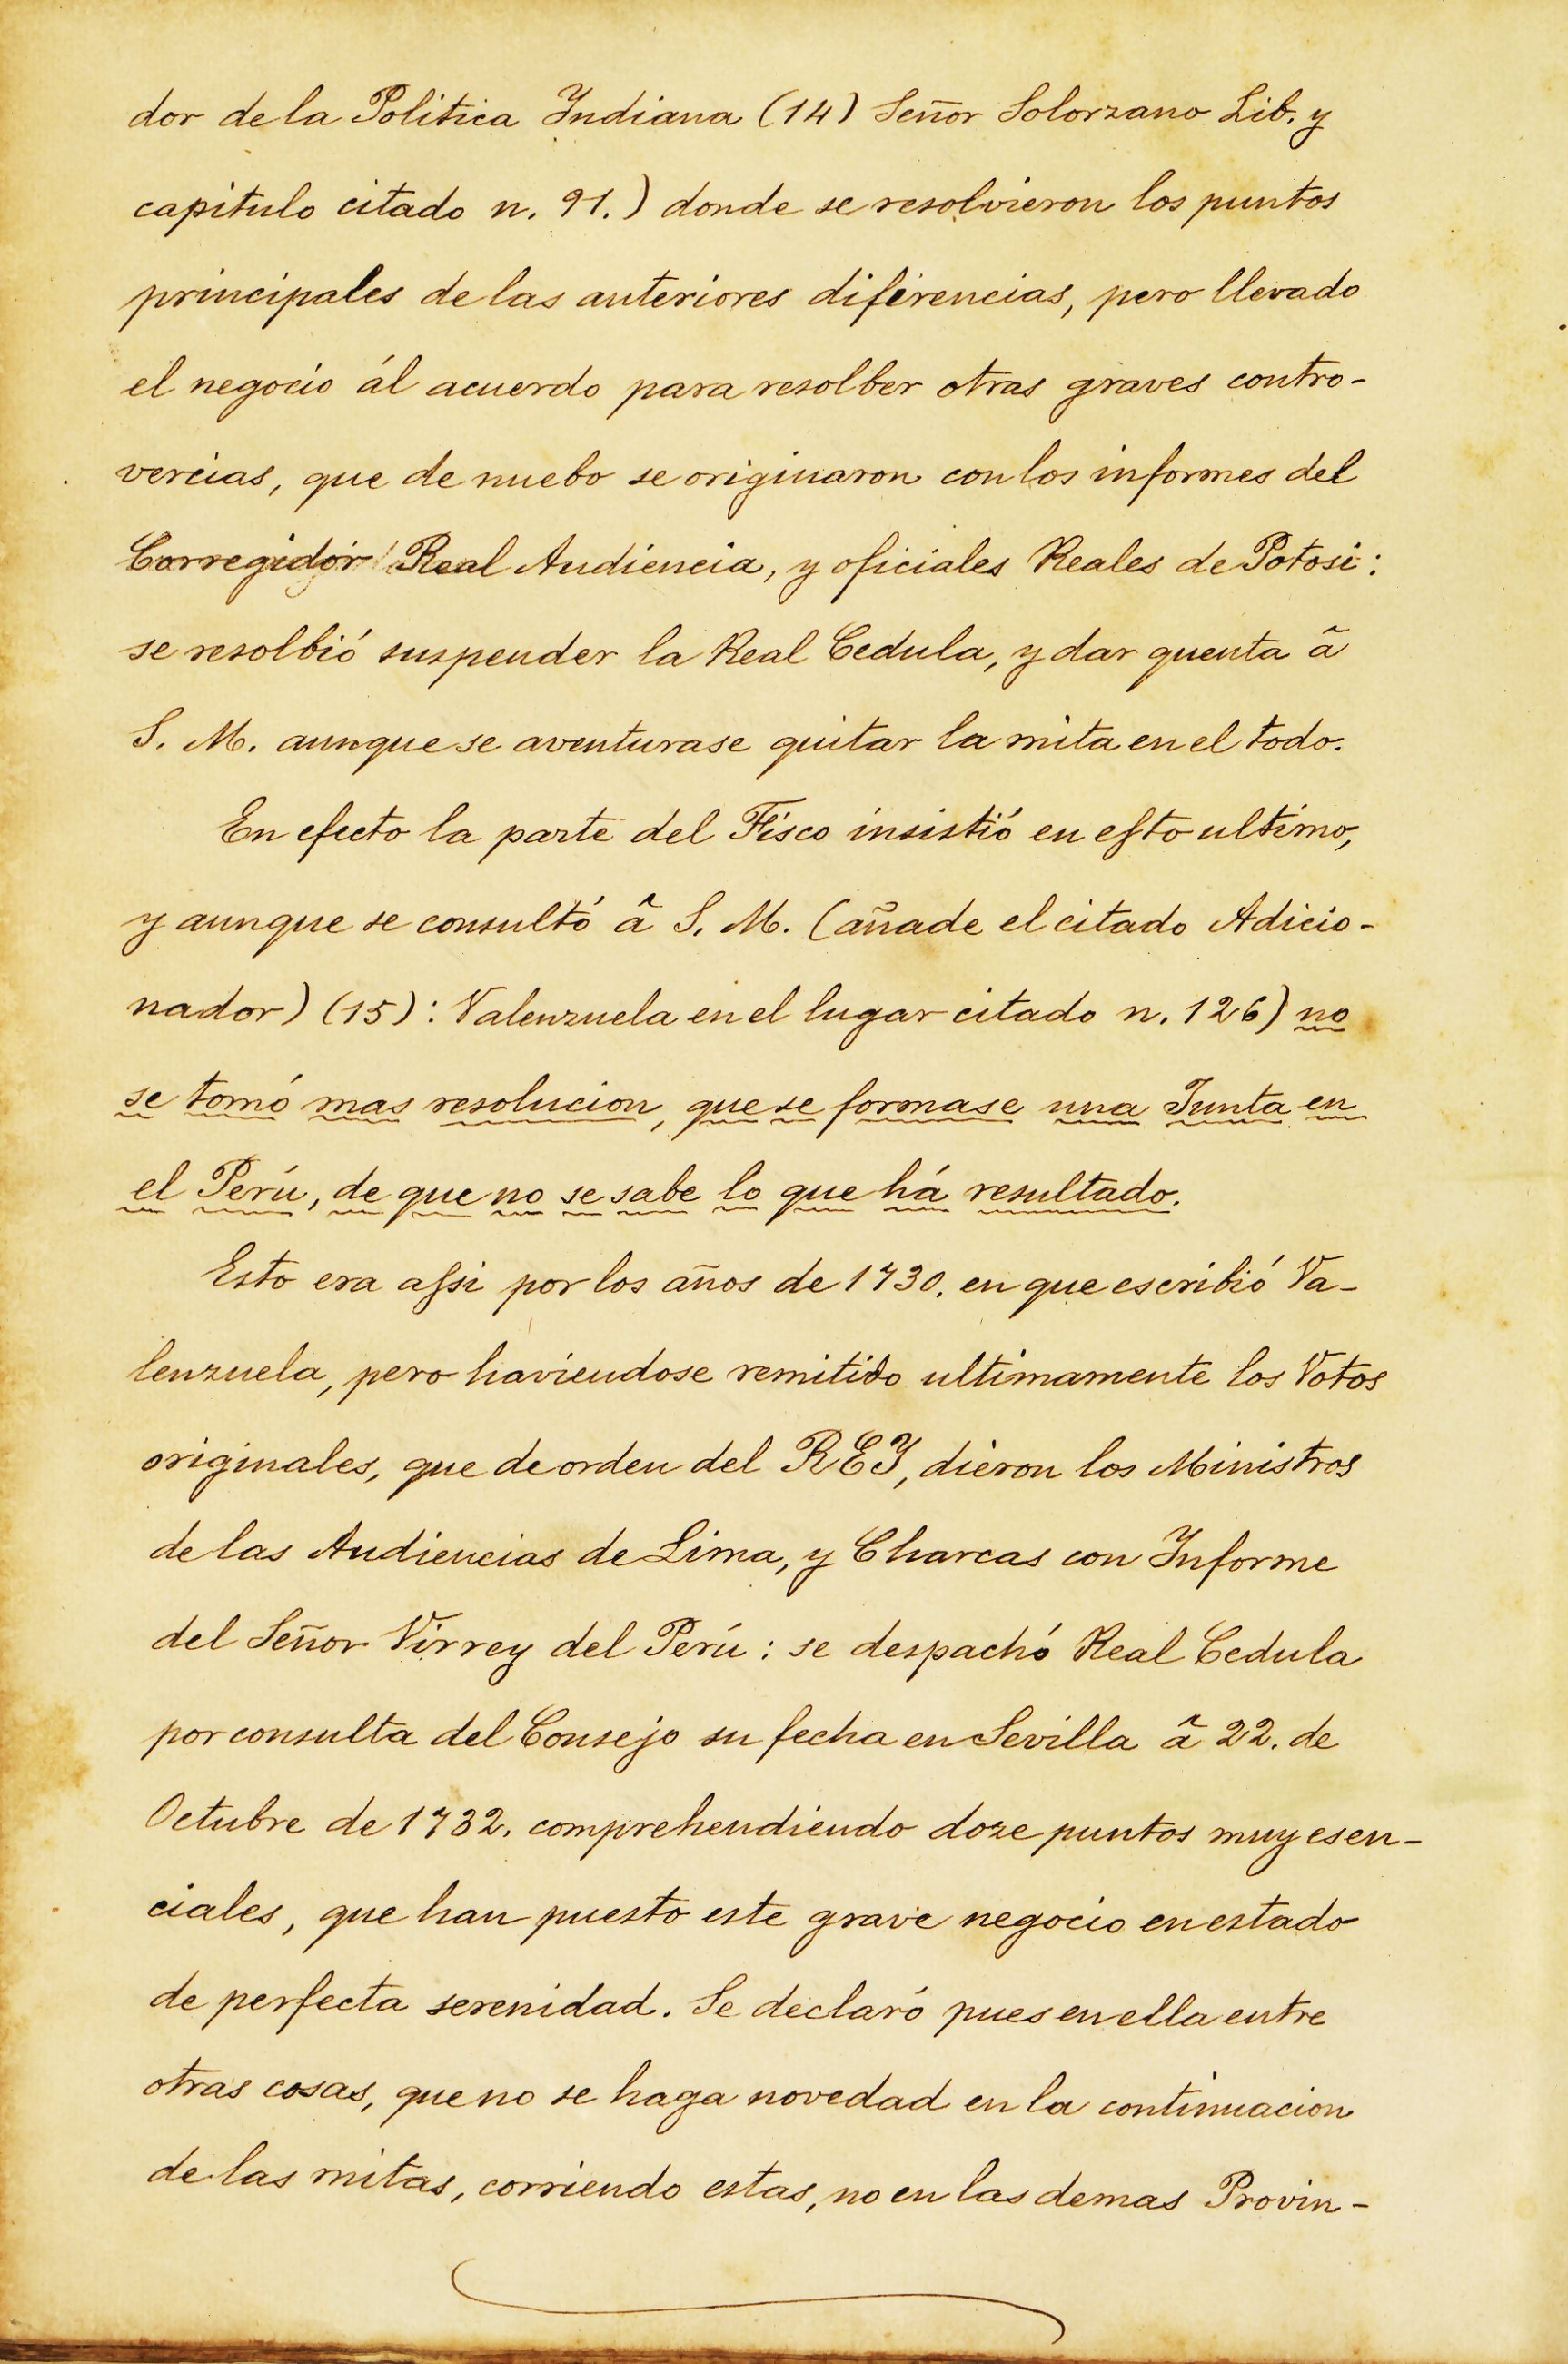 dor de la Politica Indiana (14) Señor Solorzano Lib. y
capitulo citado n. 91.) donde se resolvieron los puntos
principales de las anteriores diferencias, pero llevado
el negocio ál acuerdo para resolber otras graves contro-
vercias, que de nuebo se originaron con los informes del
Corregidor Real Audiencia, y oficiales Reales de Potosi:
se resolbió suspender la Real Cedula, y dar quenta ã
S. M. aunque se aventurase quitar la mita en el todo.
En efecto la parte del Fisco insistió en esto ultimo,
y aunque se consultó ã S. M. (añade el citado Adicio-
nador) (15): Valenzuela en el lugar citado n. 126) no
se tomó mas resolucion, que se formase una Junta en
el Perú, de que no se sabe lo que há resultado.
Esto era assi por los años de 1730. en que escribió Va-
lenzuela, pero haviendose remitido ultimamente los Votos
originales, que de orden del REY, dieron los Ministros
de las Audiencias de Lima, y Charcas con Informe
del Señor Virrey del Perú: se despachó Real Cedula
por consulta del Consejo su fecha en Sevilla ã 22. de
Octubre de 1732. comprehendiendo doze puntos muy esen-
ciales, que han puesto este grave negocio en estado
de perfecta serenidad. Se declaró pues en ella entre
otras cosas, que no se haga novedad en la continuacion
de las mitas, corriendo estas, no en las demas Provin-